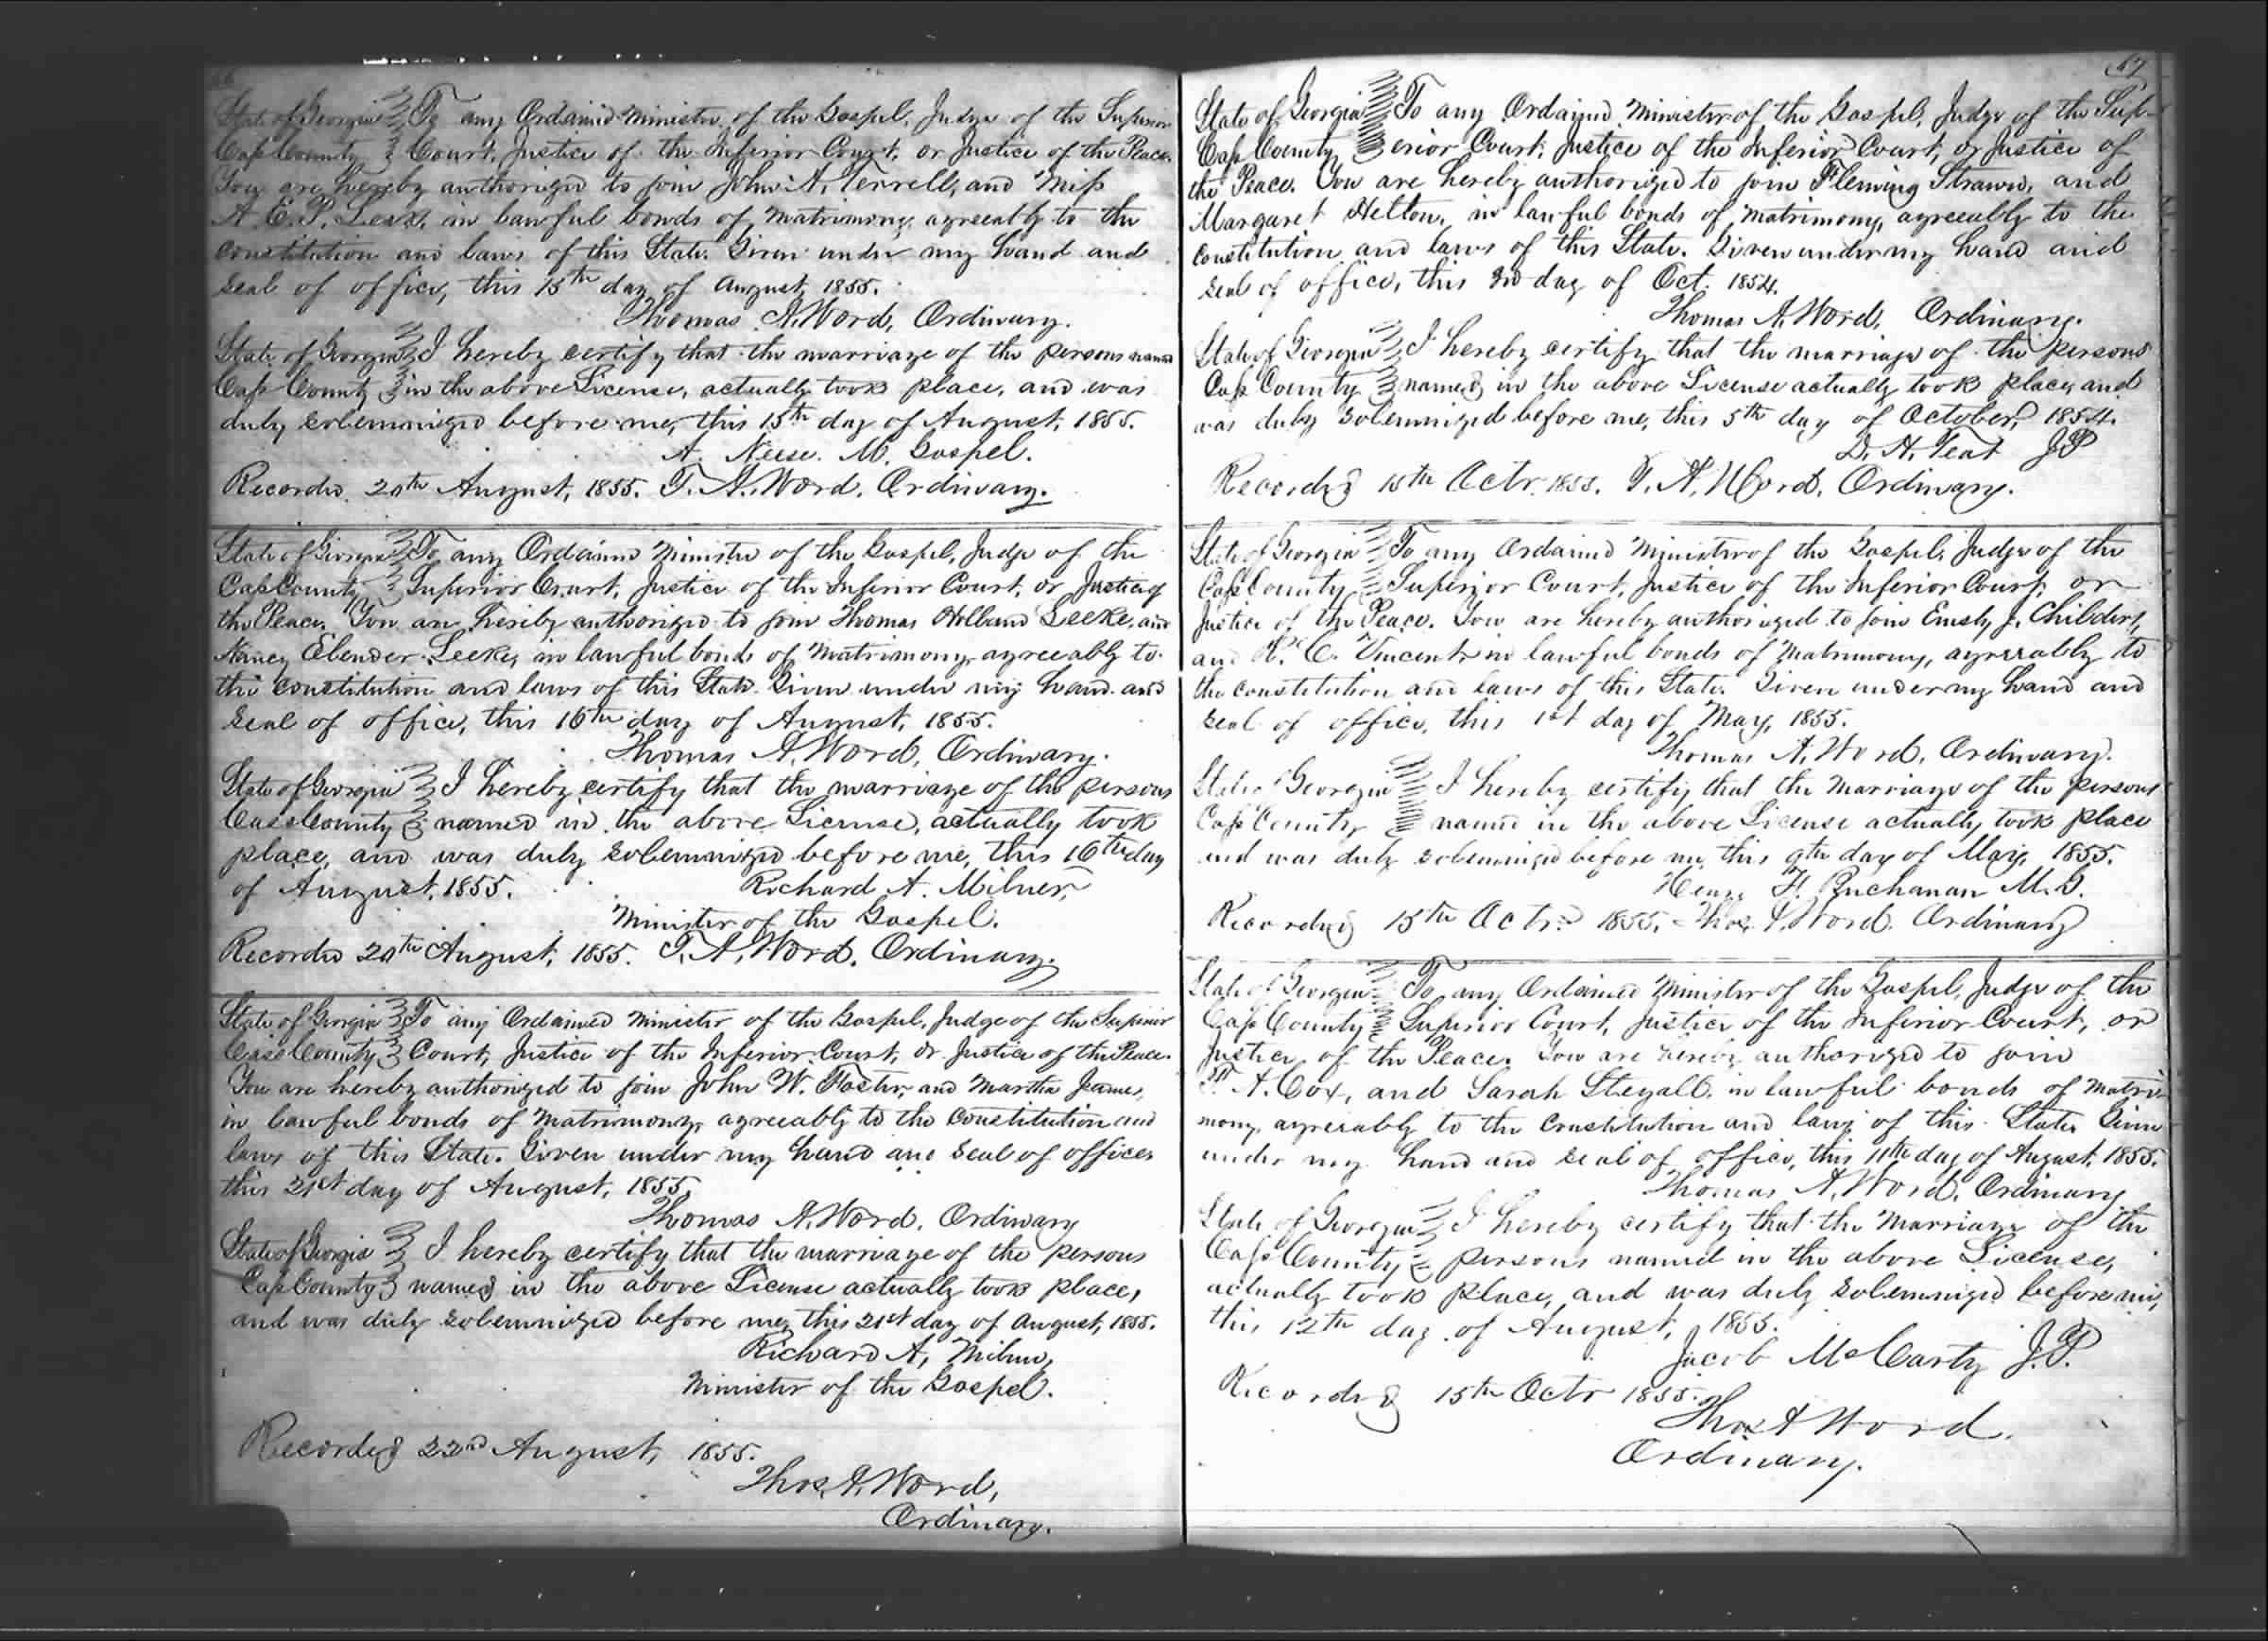 State of Georgia To any Ordained Minister of the Gospel, Judge of the Superior
Cass County Court, Justice of the Inferior Court, or Justice of the Peace.
You are hereby authorized to join John A. Terrell, and Miss
A. E. P. in lawful bonds of matrimony, agreeably to the
constitution and laws of this State. Given under my hand and
seal of office, this 15th day of August, 1855.
Thomas A. Word, Ordinary.
State of Georgia I hereby certify that the marriage of the persons named
Cass County in the above License, actually took place, and was
duly solemnized before me, this 15th day of August, 1855.
A. Neese. M. Gospel.
Recorded 20th August, 1855. T. A. Word, Ordinary.
State of Georgia To any Ordained Minister of the Gospel, Judge of the
Cass County Superior Court, Justice of the Inferior Court, or Justice of
the Peace. You are hereby authorized to join Thomas Holland Leeke, and
Nancy Ebender Leeke, in lawful bonds of Matrimony, agreeably to
the constitution and laws of this State. Given under my hand and
seal of office, this 16th day of August, 1855.
Thomas A. Word, Ordinary.
State of Georgia I hereby certify that the marriage of the persons
Cass County named in the above License, actually took
place, and was duly solemnized before me, this 16th day
of August, 1855. Richard A. Milner,
Minister of the Gospel.
Recorded 20th August, 1855. T. A. Word, Ordinary.
State of Georgia To any Ordained Minister of the Gospel, Judge of the Superior
Cass County Court, Justice of the Inferior Court, or Justice of the Peace.
You are hereby authorized to join John W. Foster, and Martha Jeames,
in lawful bonds of Matrimony, agreeably to the Constitution and
laws of this State. Given under my hand and seal of office,
this 21st day of August, 1855,
Thomas A. Word, Ordinary
State of Georgia I hereby certify that the marriage of the persons
Cass County named in the above License actually took place,
and was duly solemnized before me, this 21st day of August, 1855.
Richard A, Milner,
Minister of the Gospel.
Recorded 22nd August, 1855.
Thos. A. Word,
Ordinary.
67
State of Georgia To any Ordained Minister of the Gospel, Judge of the Sup-
Cass County erior Court, Justice of the Inferior Court, or Justice of
the Peace. You are hereby authorized to join Fleming Strawn, and
Margaret Helton, in lawful bonds of matrimony, agreeably to the
constitution and laws of this State. Given under my hand and
seal of office, this 3rd day of Oct. 1854.
Thomas A. Word, Ordinary.
State of Georgia I hereby certify that the marriage of the persons
Cass County named in the above License actually took place, and
was duly solemnized before me, this 5th day of October, 1854.
D. H. Teat J.P
Recorded 15th Octr. 1855. T. A. Word, Ordinary.
State of Georgia To any Ordained Minister of the Gospel, Judge of the
Cass County Superior Court, Justice of the Inferior Court, or
Justice of the Peace. You are hereby authorized to join Emsly J. Childers,
and C. Vincent in lawful bonds of Matrimony, agreeably to
the constitution and laws of this State. Given under my hand and
seal of office, this 1st day of May, 1855.
Thomas A. Word, Ordinary.
State of Georgia I hereby certify that the Marriage of the persons
Cass County named in the above License actually took place
and was duly solemnized before me this 9th day of May, 1855.
Henry H. Buchanan M. G.
Recorded 15th Octr. 1855. Thos. A. Word. Ordinary
State of Georgia To any Ordained Minister of the Gospel, Judge of the
Cass County Superior Court, Justice of the Inferior Court, or
Justice of the Peace. You are hereby authorized to join
A. Cox, and Sarah Stegall, in lawful bonds of Matri-
mony, agreeably to the Constitution and laws of this State. Given
under my hand and seal of office, this 11th day of August, 1855.
Thomas A. Word, Ordinary
State of Georgia I hereby certify that the Marriage of the
Cass County persons named in the above License,
actually took place, and was duly solemnized before me,
this 12th day of August, 1855.
Jacob McCarty J.P.
Recorded 15th Octr 1855.
Thos A Word.
Ordinary.